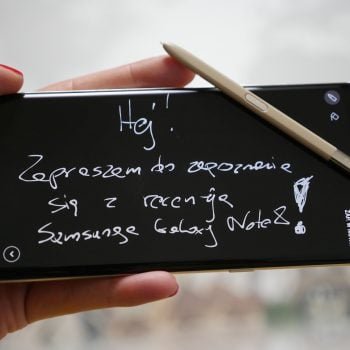 Hej!
Zapraszam do zapoznania
się z recenzją
Samsunga Galaxy Note 8!